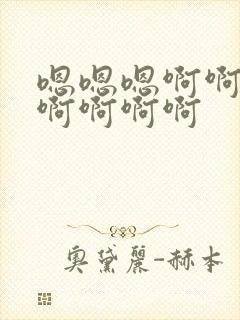 嗯嗯嗯啊啊
啊啊啊啊
奥黛丽-赫本